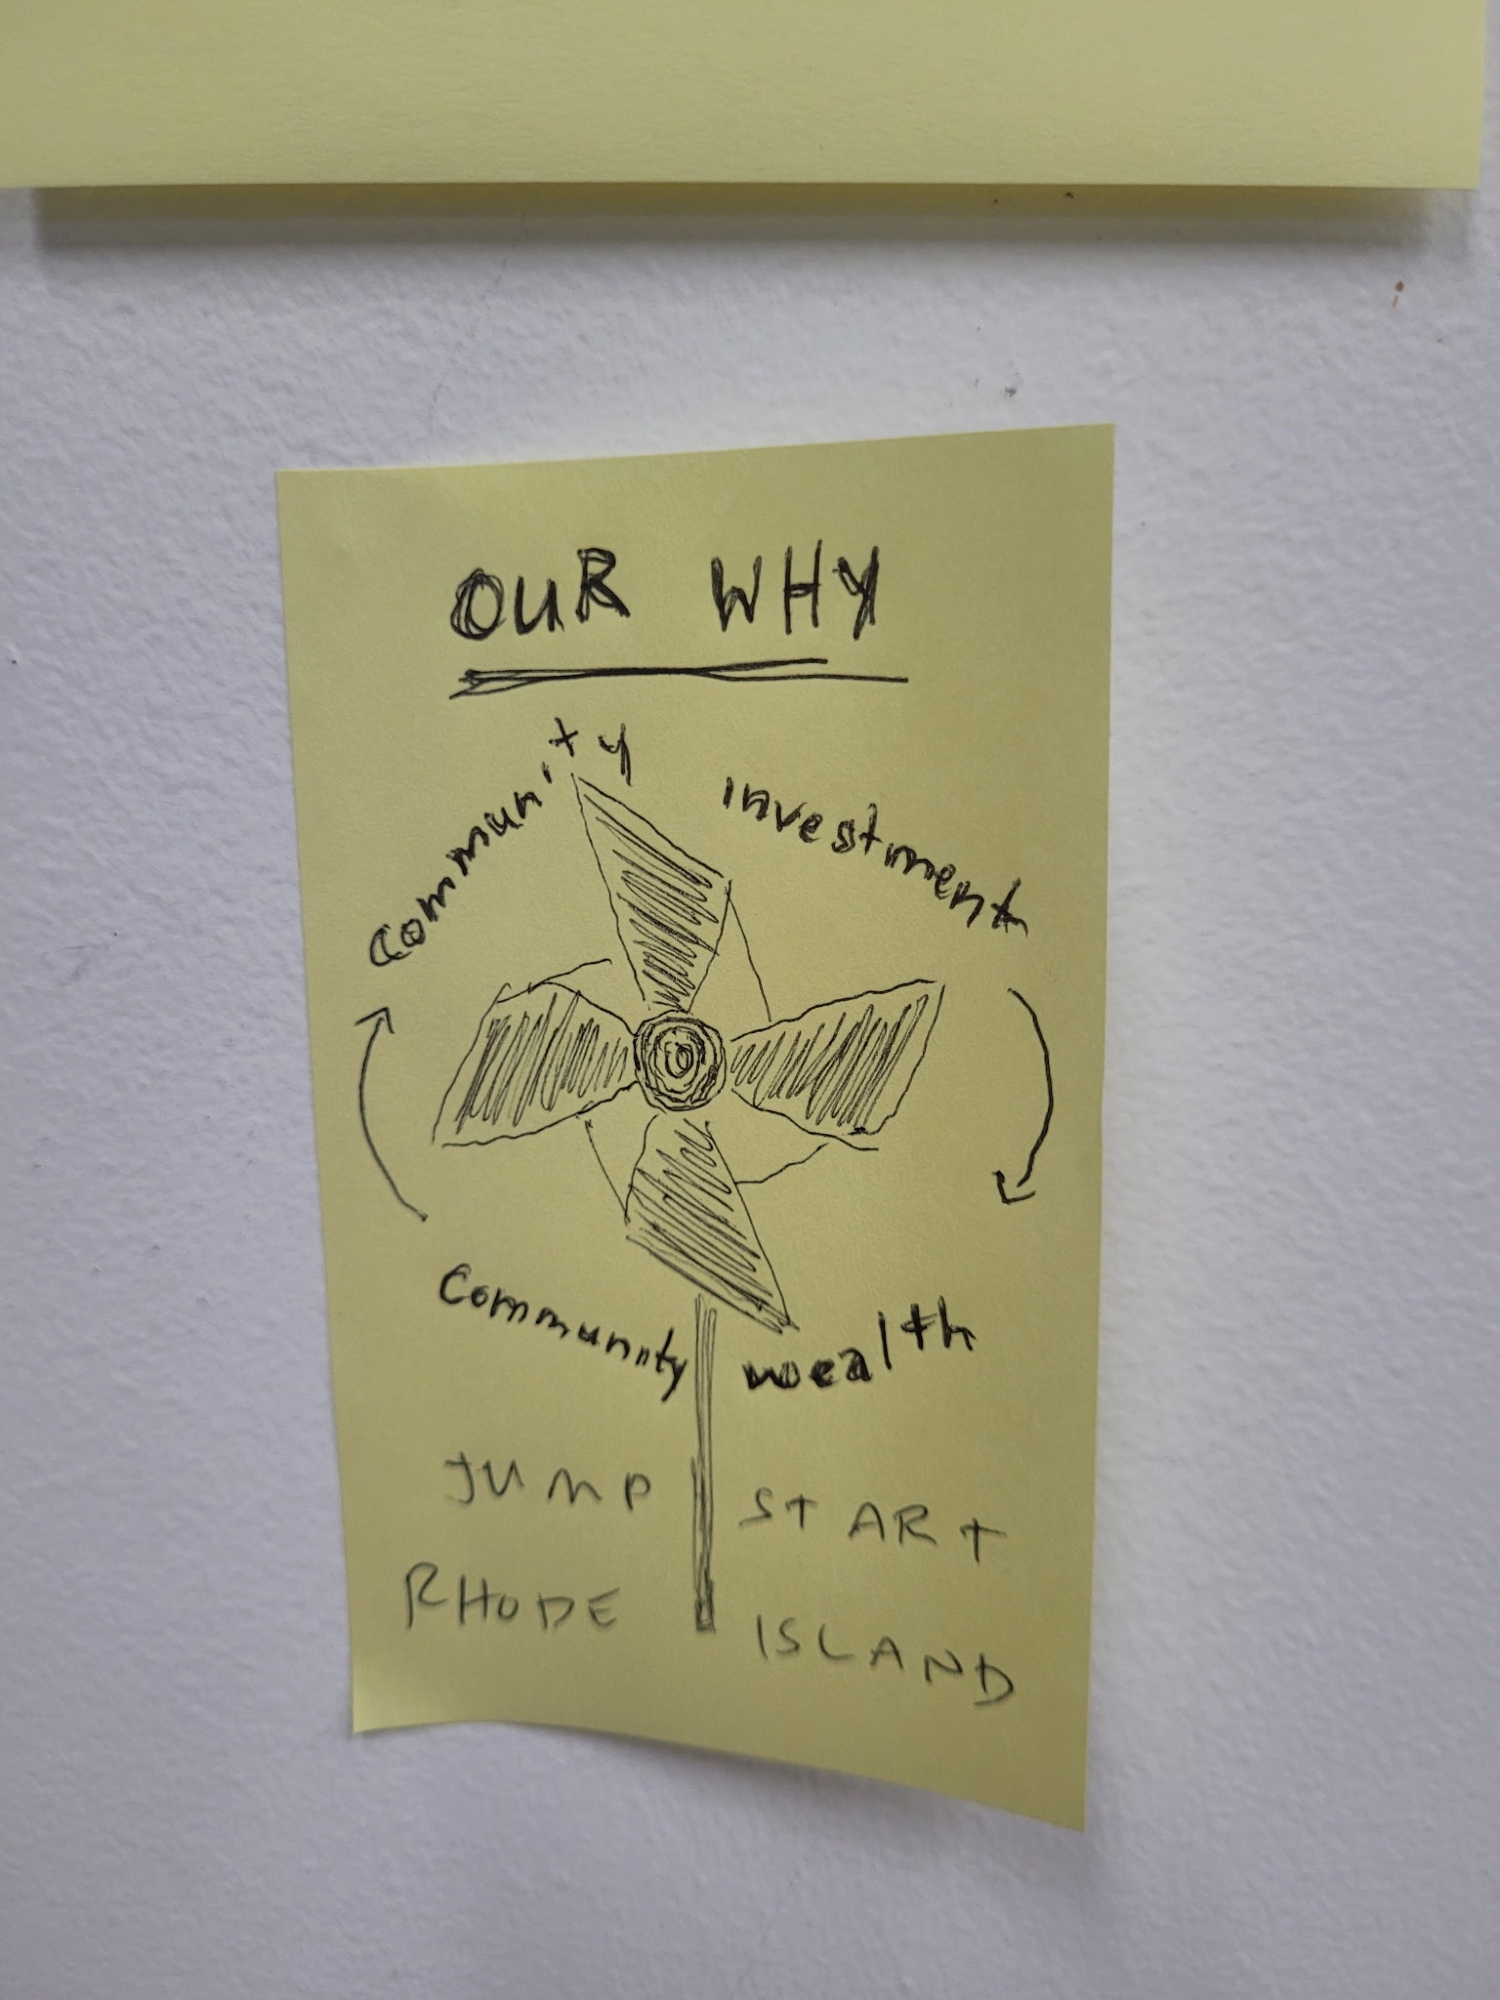 OUR WHY
Community investment
Community wealth
JUMP START
RHODE ISLAND